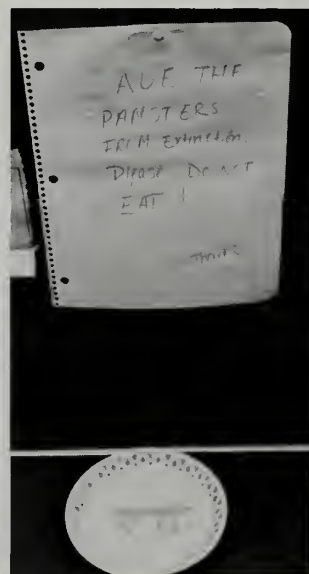 AVE THE
PANSTERS
FROM Extinction.
Please Do NOT
EAT !
Thanks